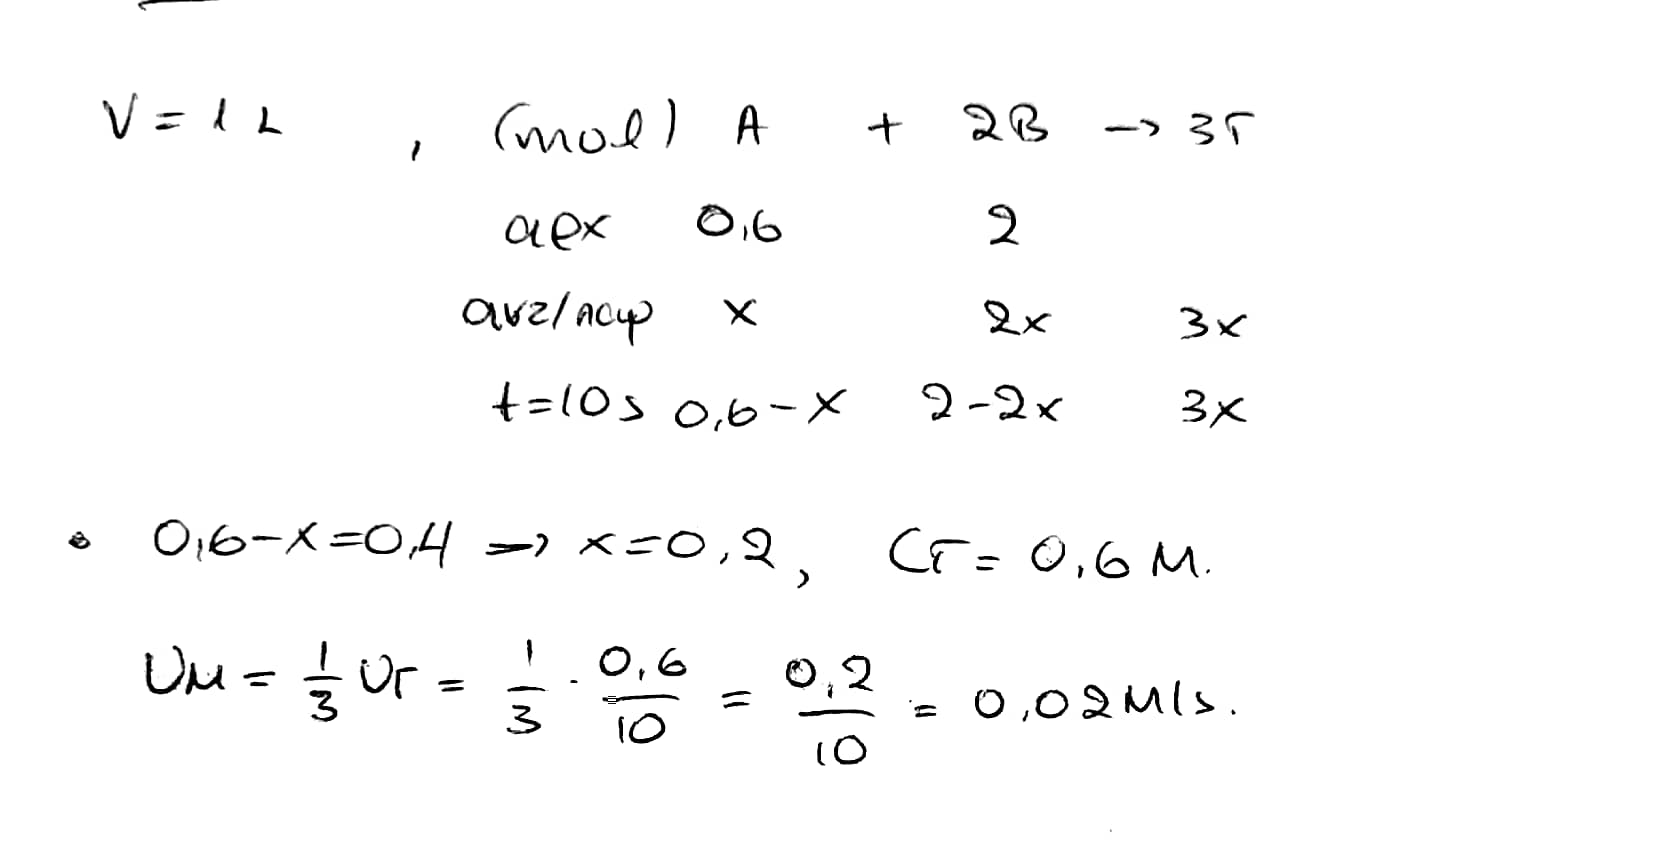 V = 1 L , (mol) A + 2B → 3Γ
αρχ 0,6 2
αντ/παρ x 2x 3x
t=10s 0,6-x 2-2x 3x
• 0,6-x=0,4 → x=0,2, CΓ = 0,6 M.
υμ = 1/3 υΓ = 1/3 · 0,6/10 = 0,2/10 = 0,02 M/s.